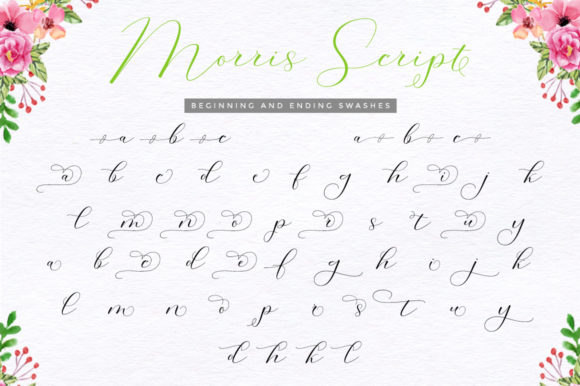 Morris Script
BEGINNING AND ENDING SWASHES
a b c a b c
a b c d e f g h i j k
l m n o p r s t u y
a b c d e f g h i j k
l m n o p r s t u y
d h k l